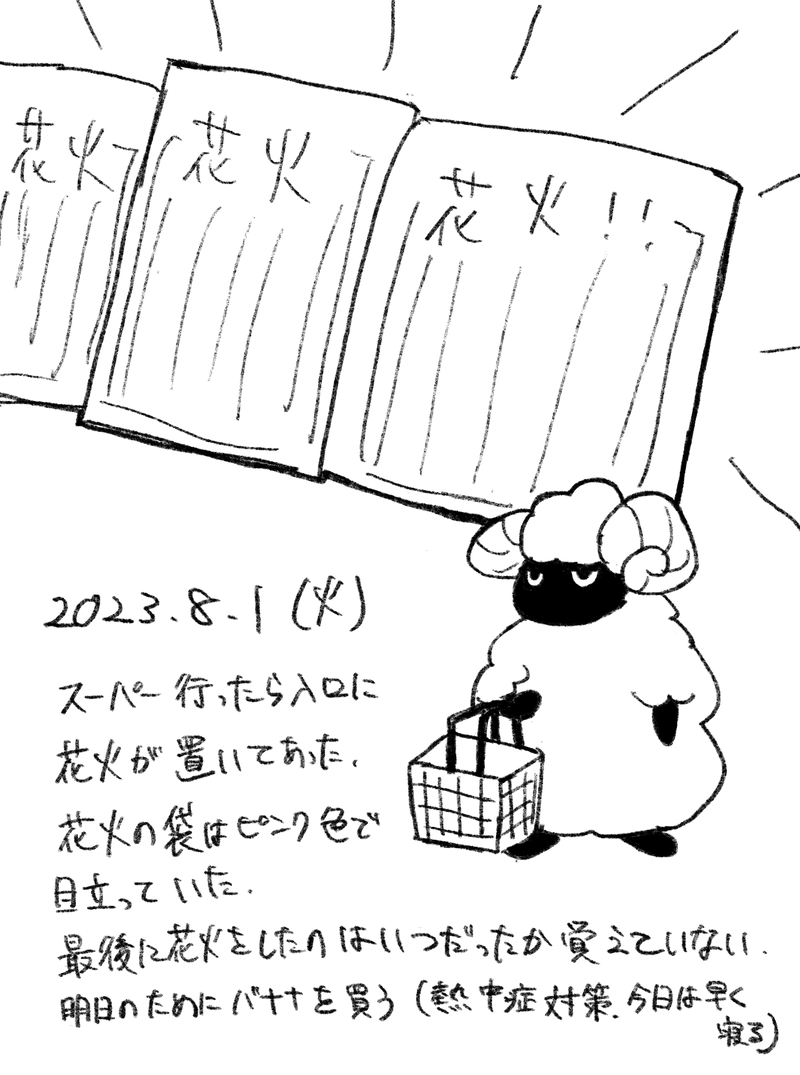 花火
花火
花火!!
2023.8.1(火)
スーパー行ったら入口に
花火が置いてあった.
花火の袋はピンク色で
目立っていた.
最後に花火をしたのはいつだったか覚えていない.
明日のためにバナナを買う(熱中症対策.今日は早く
寝る)